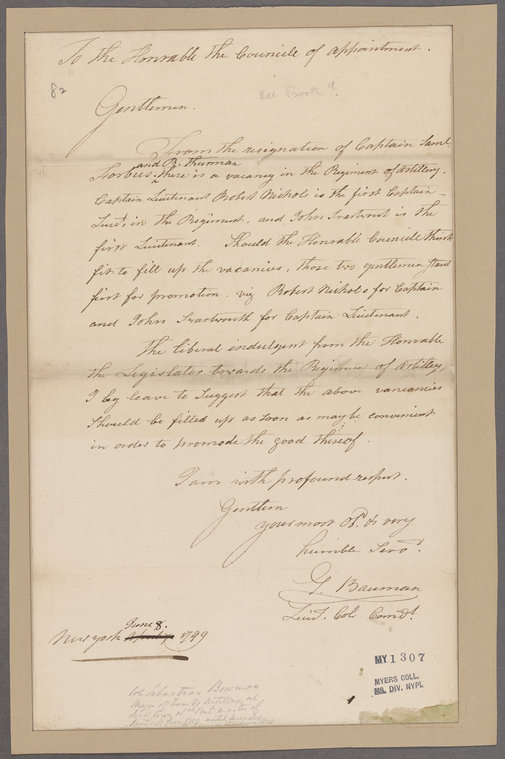 To the Honrable the Counicle of appointment.
82
see Book
Gentlemen.
From the resignation of Captain Saml
and R. Thurman
Forbus ^ there is a vacancy in the Regiment of Artillery.
Captain Lieutenant Robert Nichols is the first Captain-
Lieut. in the Regiment. and John Swartwout is the
first Lieutenant. Should the Honrable Counicle think
fit to fill up the vacancies, those two gentlemen stand
first for promotion. viz Robert Nichols for Captain
and John Swartwouth for Captain Lieutenant.
The liberal indulgent from the Honrable
the Legislator towards the Regiment of Artillery,
I beg leave to Suggest that the above vancancies
should be filled up as soon as may be convenient
in order to promode the good thereof.
I am with profound respect.
Gentlem
your most Obt & very
humble Servt.
S. Bauman
Lieut. Col. Comdt.
June 8.
New york 1799
MY 1307
MYERS COLL.
MS. DIV. NYPL
Col Sebastian Bowman
Major of Artillery